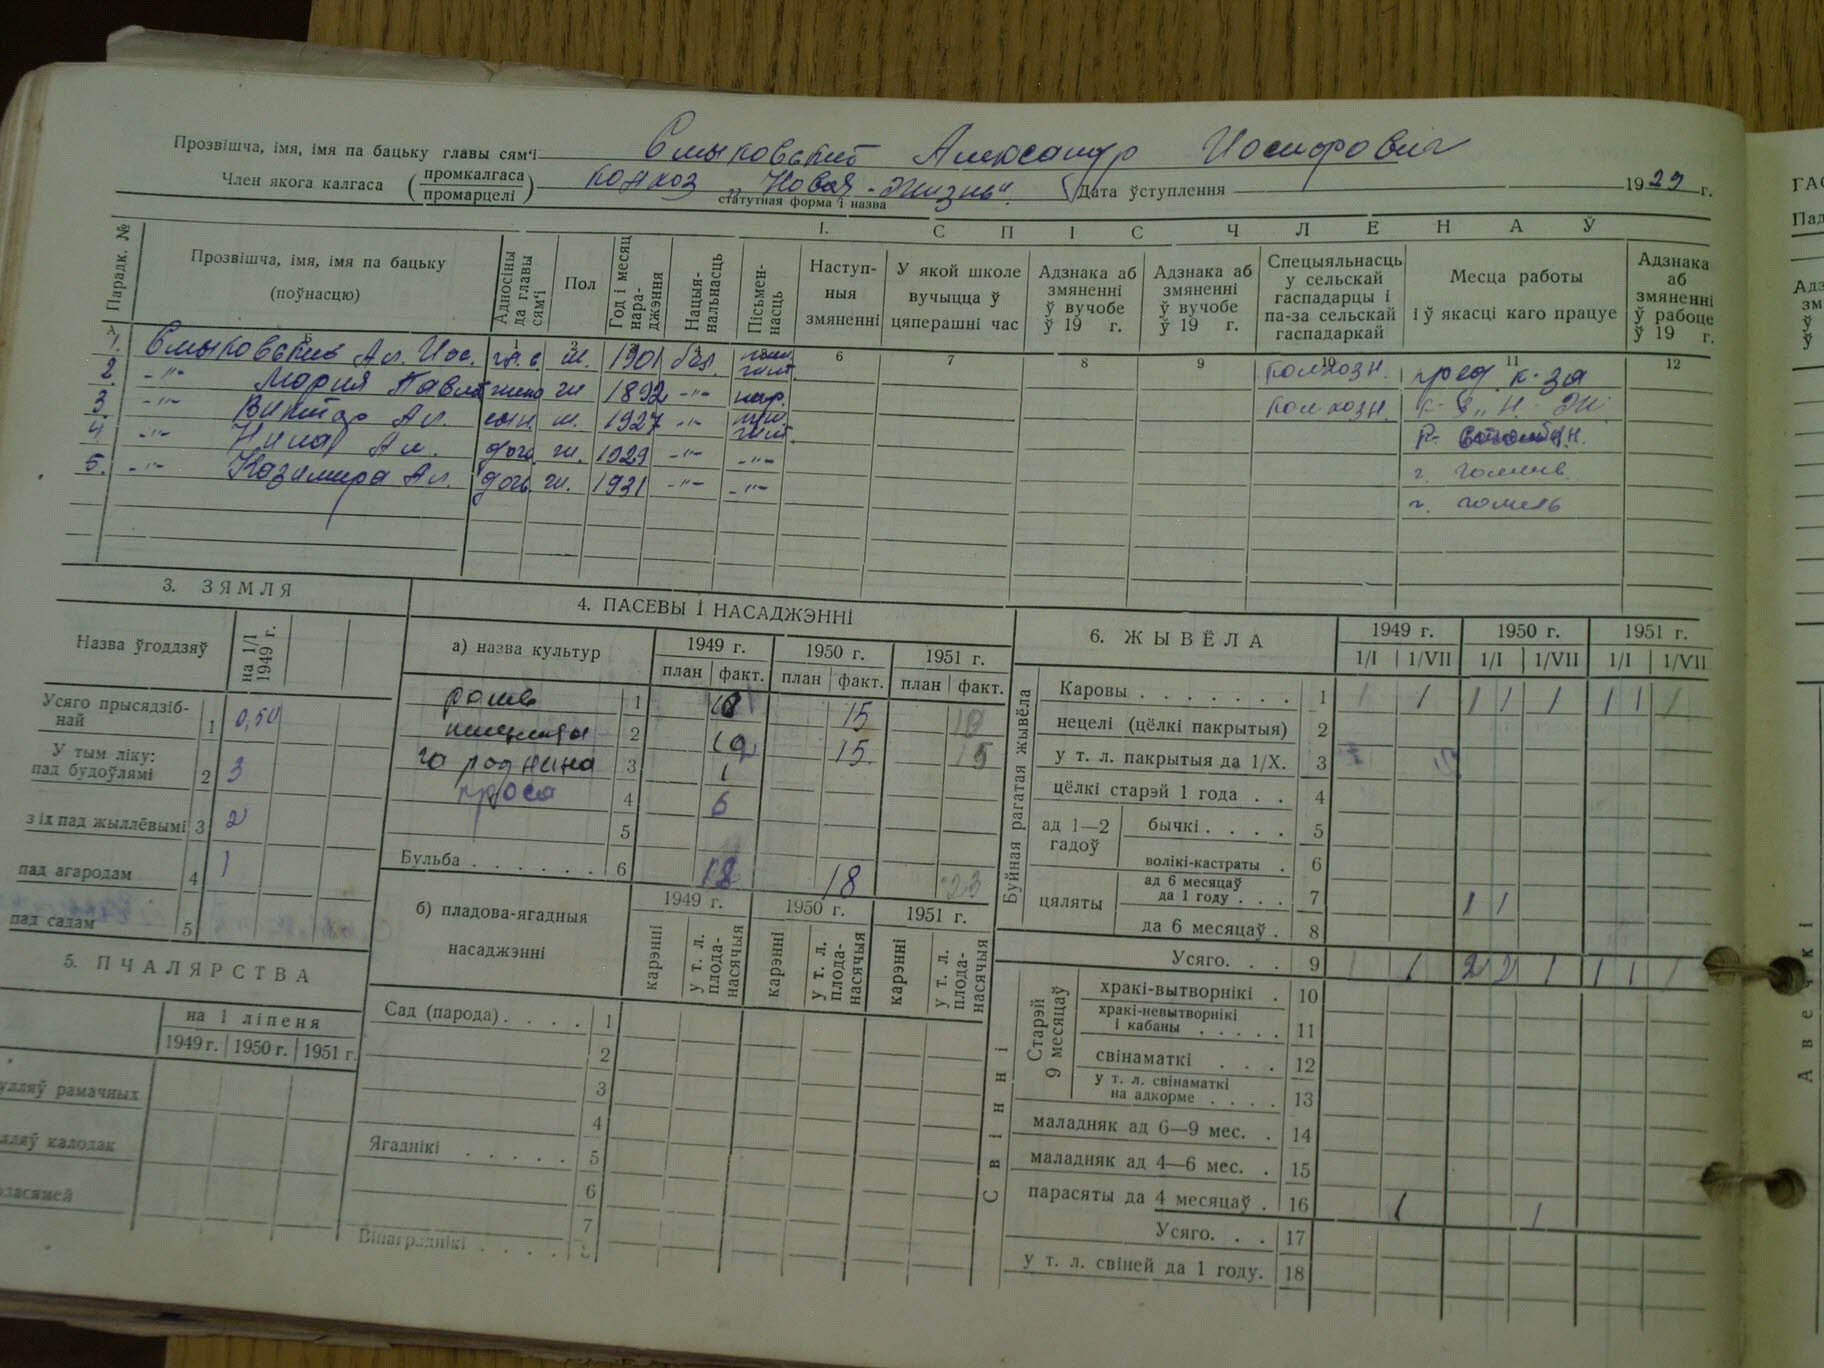 Прозвішча, імя, імя па бацьку главы сям'і Смыковский Александр Иосифович
Член якога калгаса (промкалгаса промарцелі) колхоз „Новая Жизнь" Дата ўступлення 1929 г.
статутная форма і назва
I. СПІС ЧЛЕНАЎ
Парадк. № Прозвішча, імя, імя па бацьку (поўнасцю) Адносіны да главы сям'і Пол Год і месяц нараджэння Нацыянальнасць Пісьменнасць Наступныя змяненні У якой школе вучыцца ў цяперашні час Адзнака аб змяненні ў вучобе ў 19 г. Адзнака аб змяненні ў вучобе ў 19 г. Спецыяльнасць у сельскай гаспадарцы і па-за сельскай гаспадаркай Месца работы і ў якасці каго працуе Адзнака аб змяненні ў рабоце ў 19 г.
6 7 8 9 10 11 12
1. Смыковский Ал. Иос. гл. с. м. 1901 бел. колхозн. пред. к-за
2 -"- Мария жена ж 1892 -"- колхозн.
3 -"- Виктор Ал. сын. м. 1927 -"-
4 -"- Нина Ал. доч. ж. 1929 -"- -"-
5. -"- Казимира Ал. доч. ж. 1931 -"- -"- г. гомель
3. ЗЯМЛЯ
Назва ўгоддзяў на 1/I 1949 г.
Усяго прысядзібнай 1 0,50
У тым ліку: пад будоўлямі 2 3
з іх пад жыллёвымі 3 2
пад агародам 4 1
пад садам 5
5. ПЧАЛЯРСТВА
на 1 ліпеня
1949 г. 1950 г. 1951 г.
рамачных
калодак
4. ПАСЕВЫ І НАСАДЖЭННІ
а) назва культур 1949 г. 1950 г. 1951 г.
план факт. план факт. план факт.
1 15 10
пшеницы 2 15 15
городнина 3 1
проса 4 6
5
Бульба 6 18 23
б) пладова-ягадныя насаджэнні 1949 г. 1950 г. 1951 г.
карэнні у т. л. плоданасячыя карэнні у т. л. плоданасячыя карэнні у т. л. плоданасячыя
Сад (парода) 1
2
3
4
Ягаднікі 5
6
7
Вінаграднікі
6. ЖЫВЁЛА 1949 г. 1950 г. 1951 г.
1/I 1/VII 1/I 1/VII 1/I 1/VII
Буйная рагатая жывёла
Каровы 1 1 1 1 1 1 1 1 1
нецелі (цёлкі пакрытыя) 2
у т. л. пакрытыя да 1/X. 3
цёлкі старэй 1 года 4
ад 1—2 гадоў бычкі 5
волікі-кастраты 6
цяляты ад 6 месяцаў да 1 году 7 1 1
да 6 месяцаў 8
Усяго 9 1 1 2 2 1 1 1 1
Свінні
Старэй 9 месяцаў хракі-вытворнікі 10
хракі-невытворнікі і кабаны 11
свінаматкі 12
у т. л. свінаматкі на адкорме 13
маладняк ад 6—9 мес. 14
маладняк ад 4—6 мес. 15
парасяты да 4 месяцаў 16 1 1
Усяго 17
у т. л. свіней да 1 году. 18
Авечкі